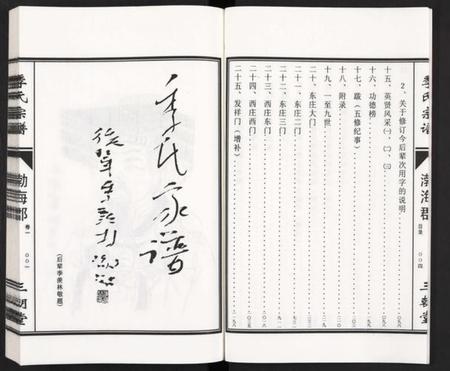 季氏宗谱
渤海群
目录
〇〇四
三朝堂
2、关于修订今后辈次用字的说明
十五、英贤风采(一)、(二)、(三)
十六、功德榜
十七、跋(五修纪事)
十八、附录
十九、一至九世
二十、东庄大门
二十一、东庄二门
二十二、东庄三门
二十三、西庄东门
二十四、西庄西门
二十五、发祥门(增补)
季氏家谱
后辈季羡林敬题
(后辈季羡林敬题)
季氏宗谱
渤海郡
卷一
〇〇一
三朝堂